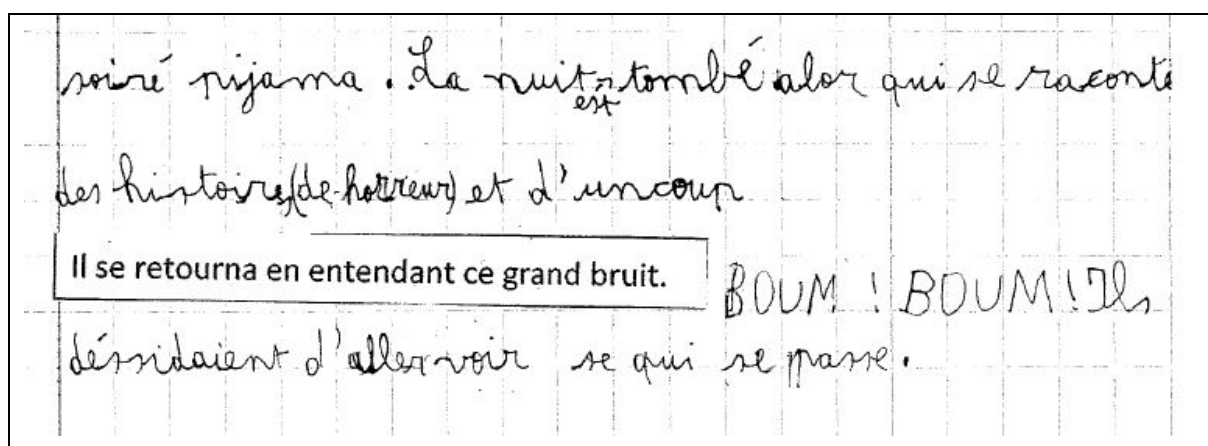 soiré pijama. La nuit est tombé alor qui se raconte
des histoires (de horreur) et d'uncoup
Il se retourna en entendant ce grand bruit. BOUM ! BOUM ! Ils
déssidaient d'aller voir se qui se passe.